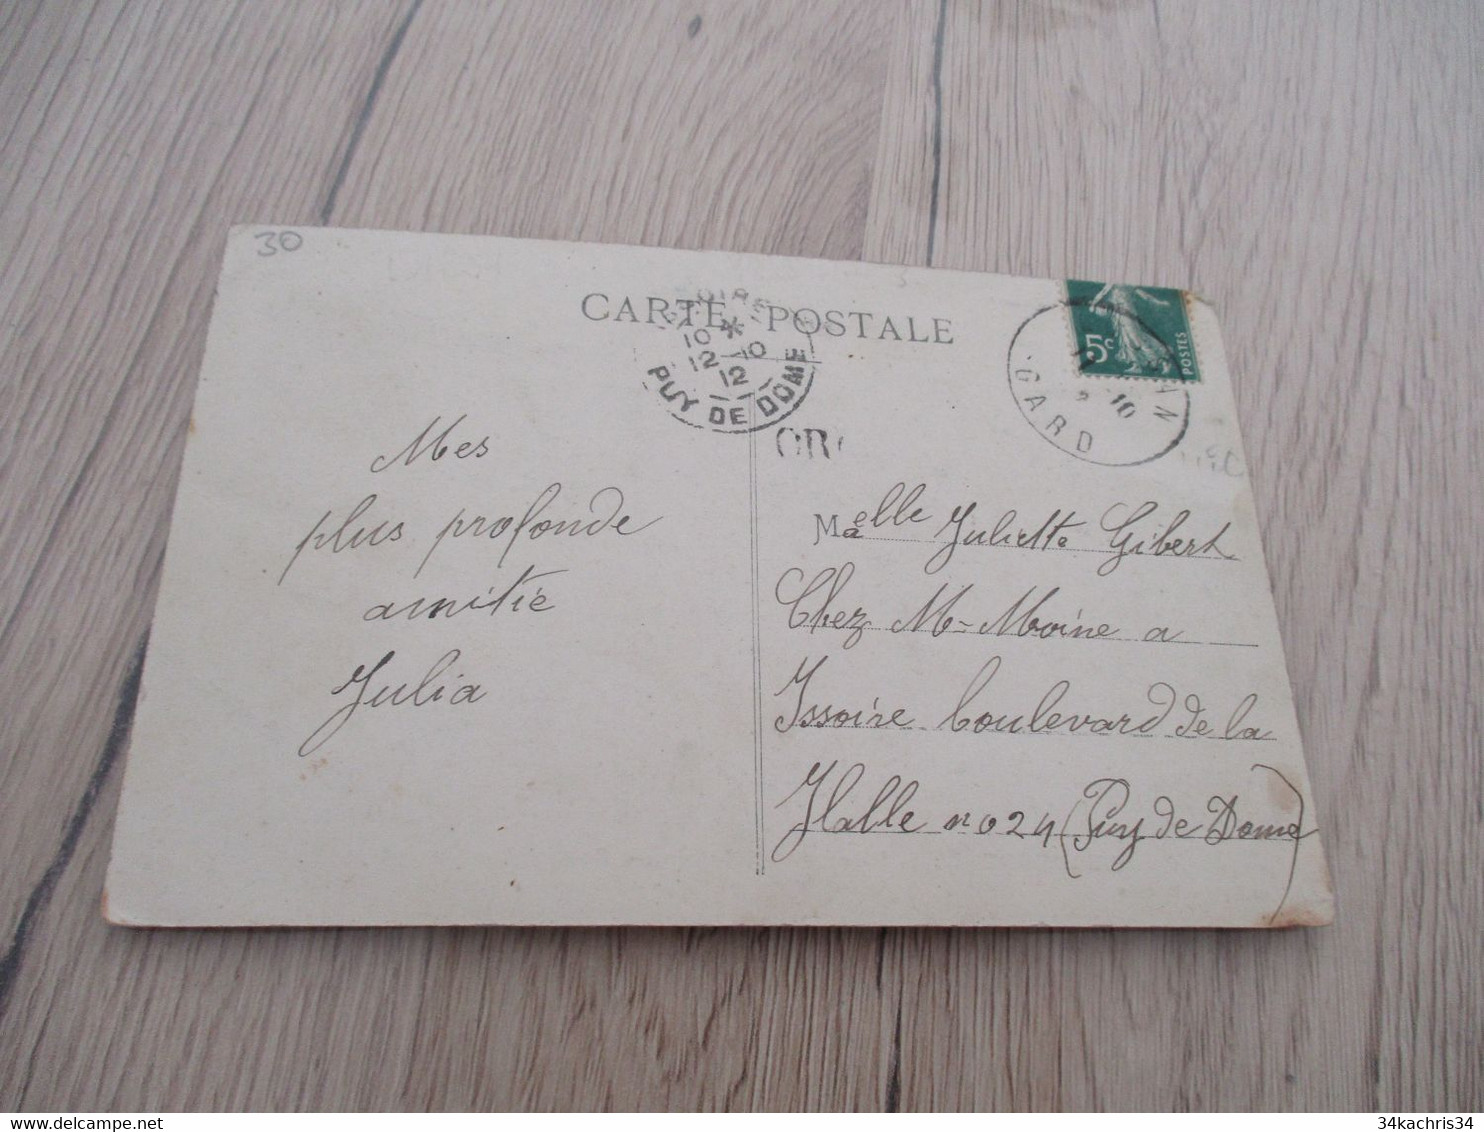 30
CARTE POSTALE
10
12-10
12
PUY DE DOME
5c
POSTES
GARD
10
OR
Mes
plus profonde
amitié
Julia
Melle Juliette Gibert
Chez M- Moine a
Issoire boulevard de la
Halle no 24 (Puy de Dome)
34kachris34
delcampe.net